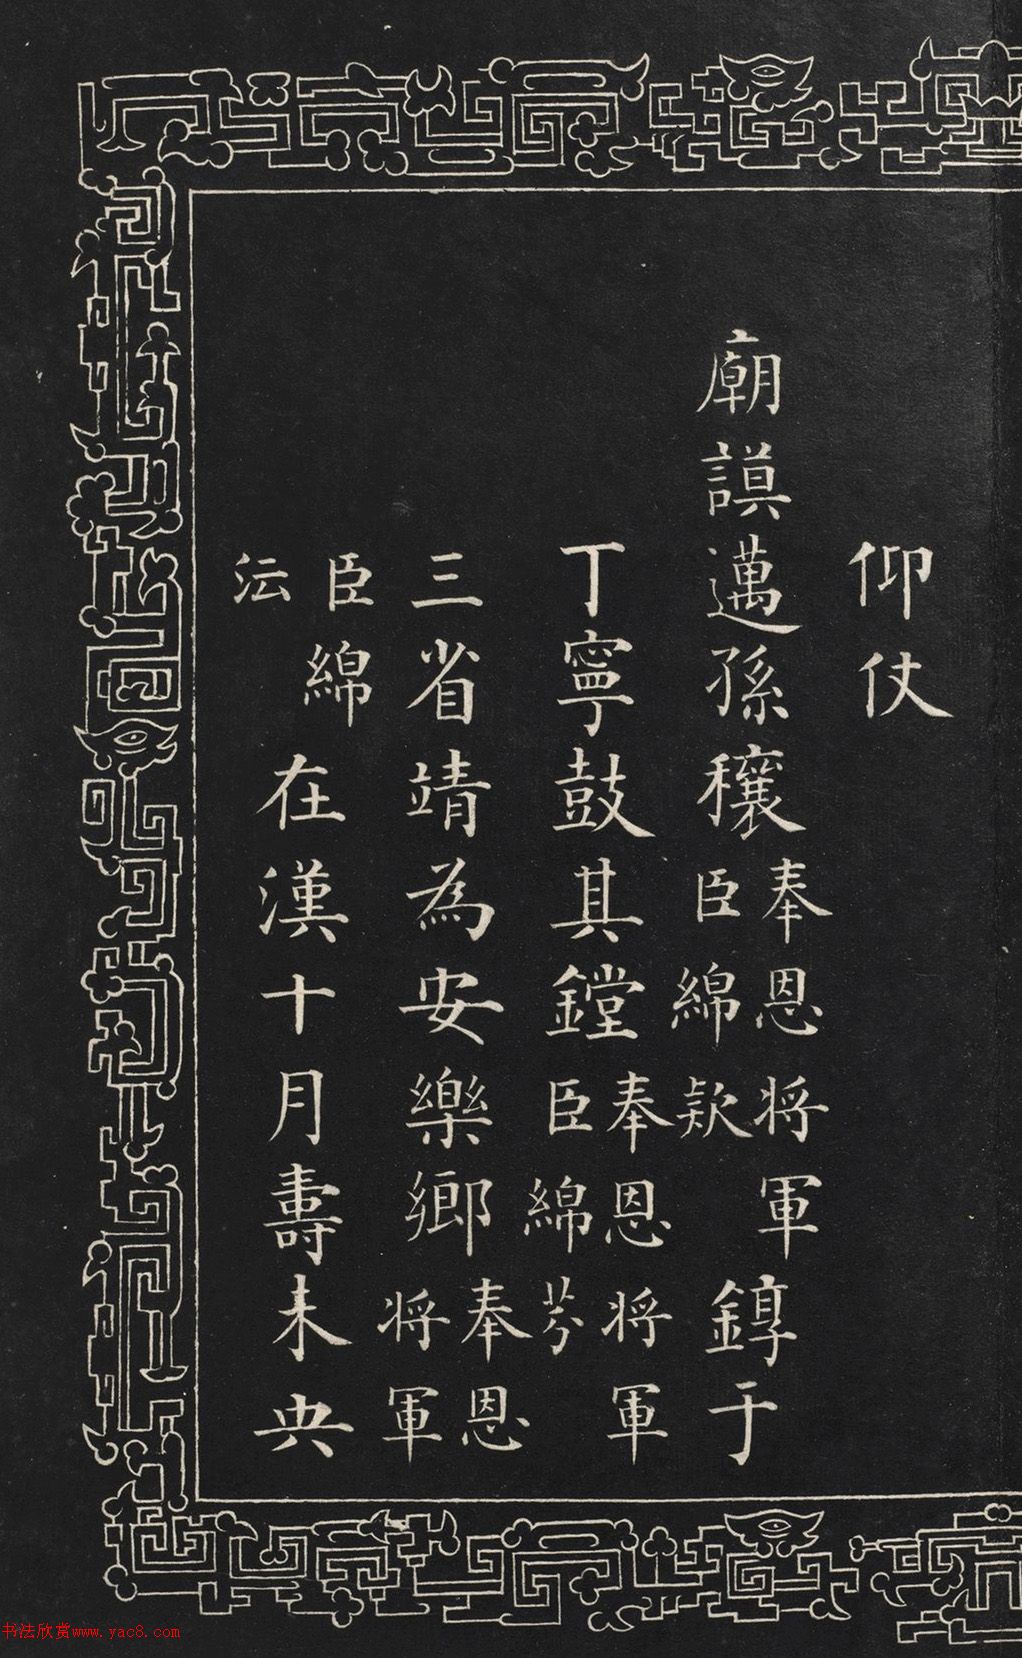 仰仗
廟謨邁孫穰奉恩将軍臣綿欵錞于
丁寧鼓其鏜奉恩将軍臣綿芬
三省靖為安樂鄉奉恩将軍
臣綿沄在漢十月壽未央
书法欣赏www.yac8.com